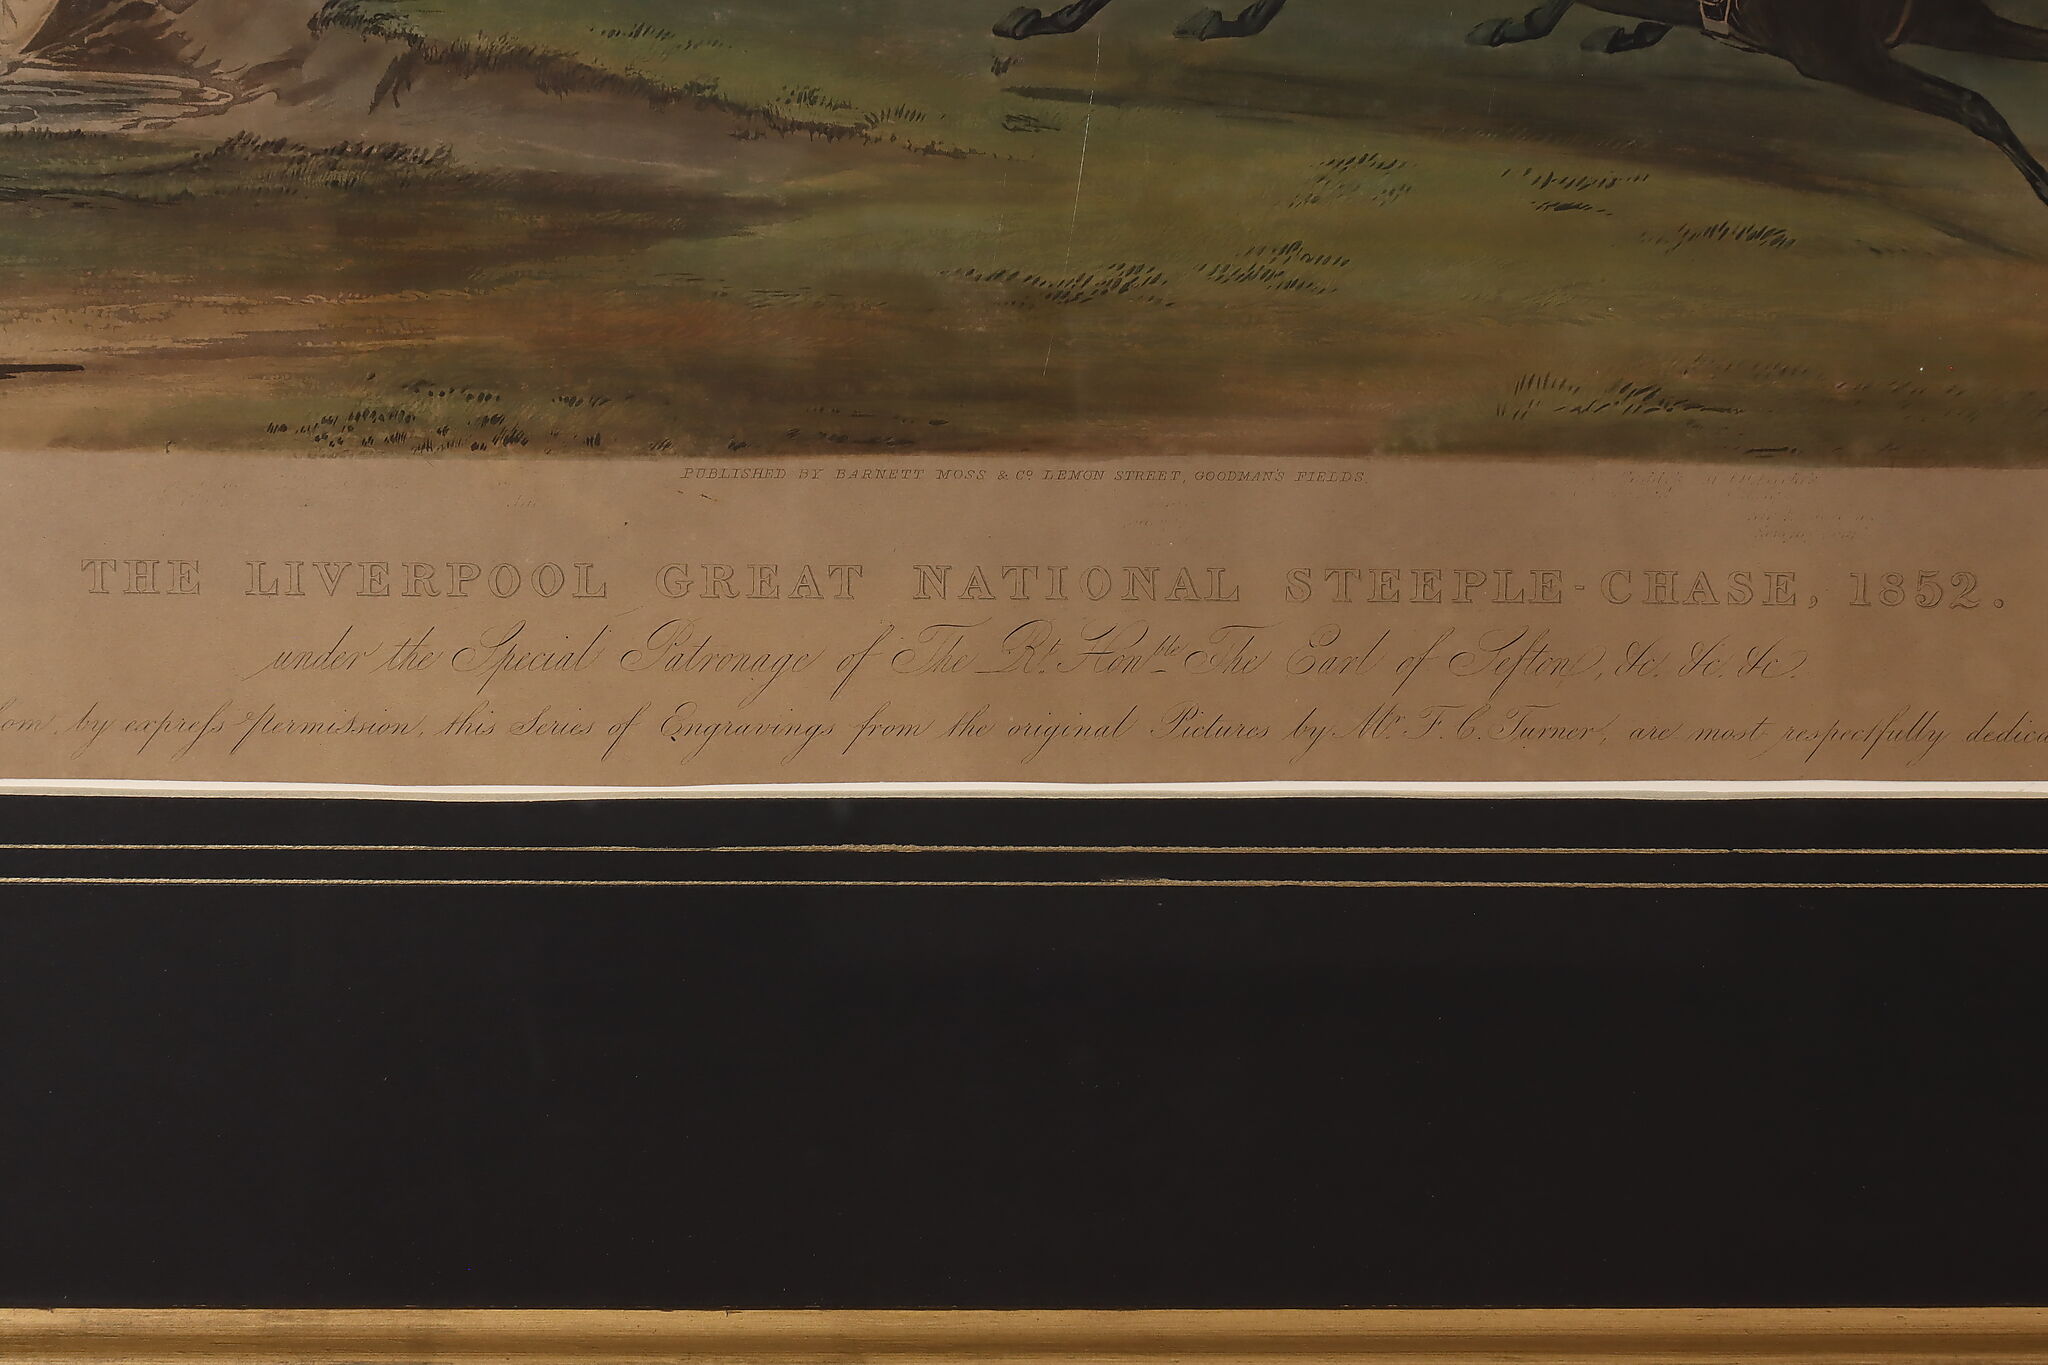 PUBLISHED BY BARNETT MOSS & Cº LEMON STREET, GOODMAN'S FIELDS.
THE LIVERPOOL GREAT NATIONAL STEEPLE-CHASE, 1852.
under the Special Patronage of The Rt. Honble The Earl of Sefton, &c. &c. &c.
by expreſs permission, this Series of Engravings from the original Pictures by Mr. F. C. Turner, are most respectfully